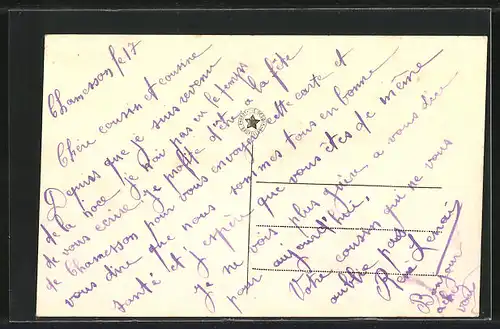 Chamesson le 17
Cher cousin et cousine
Depuis que je suis revenu
de la noce je n'ai pas eu le temps
de vous ecrire je profite d'être a la fête
de Chamesson pour vous envoyer cette carte et
vous dire que nous sommes tous en bonne
santé et j'espère que vous êtes de même
je ne vois plus grère a vous dire
pour aujourd'hui.
Votre cousin qui ne vous
oublie pas
René
Bonjour
a